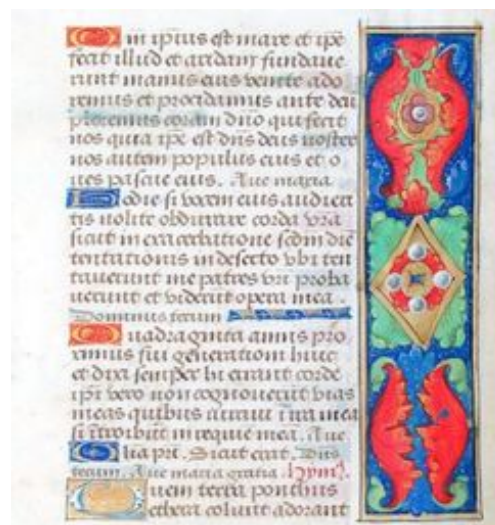 Qm ipius est mare et ipe
fecit illud et aridam fundaue
runt manus eius venite ado
remus et procidamus ante deu
ploremus coram dno qui fecit
nos quia ipe est dns deus noster
nos autem populus eius et o
ues pascue eius. Aue maria
Hodie si vocem eius audieri
tis nolite obdurare corda vra
sicut in exacerbatione scdm die
tentationis in deserto vbi ten
tauerunt me patres vri proba
uerunt et viderut opera mea.
Dominus tecum
Quadraginta annis pro
ximus fui generationi huic
et dixi semper hi errant corde
ipi vero non cognouerut vias
meas quibus iuraui in ira mea
si itroibut in requie mea. Aue
Glia pri. Sicut erat. Dns
tecum. Aue maria gratia. hym9.
Quem terra ponthus
ethera colunt adorant